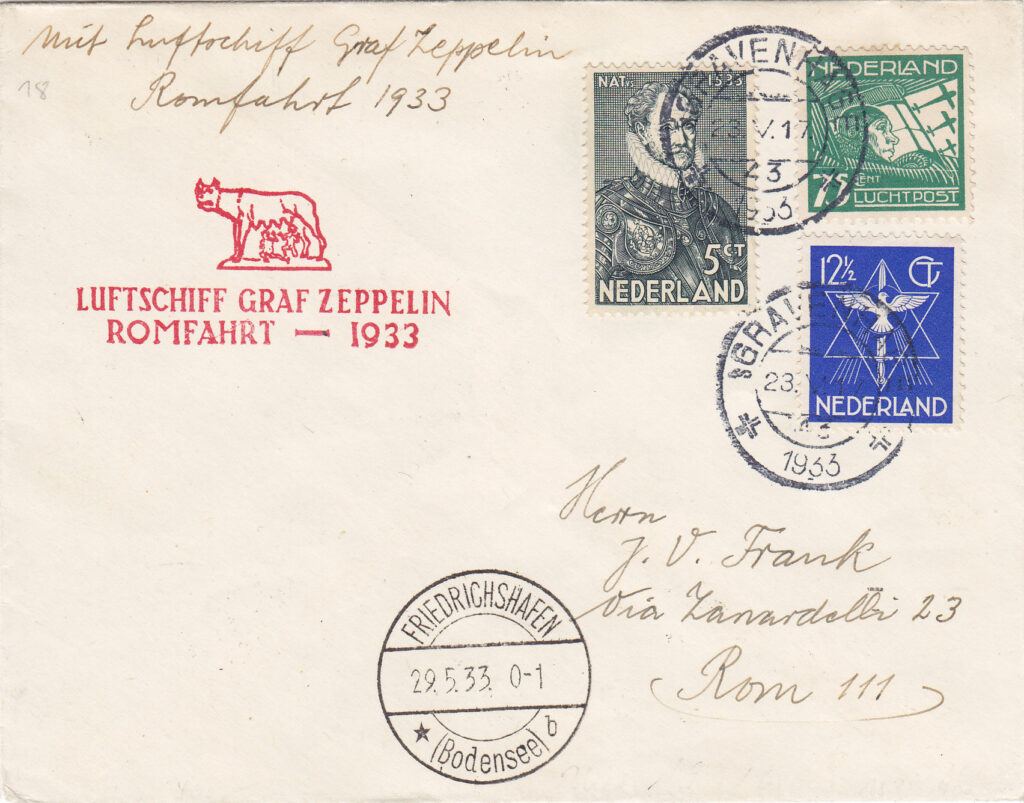 Mit Luftschiff Graf Zeppelin
Romfahrt 1933
18
LUFTSCHIFF GRAF ZEPPELIN
ROMFAHRT — 1933
NAT. 1533
5 CT
NEDERLAND
NEDERLAND
75 CENT
LUCHTPOST
12½ CT
NEDERLAND
'SGRAVENHAGE
23.V.17
23
1933
'SGRAVE
23.
1933
Herrn
J. V. Frank
Via Zanardelli 23
Rom 111
FRIEDRICHSHAFEN
29.5.33. 0-1
(Bodensee) b